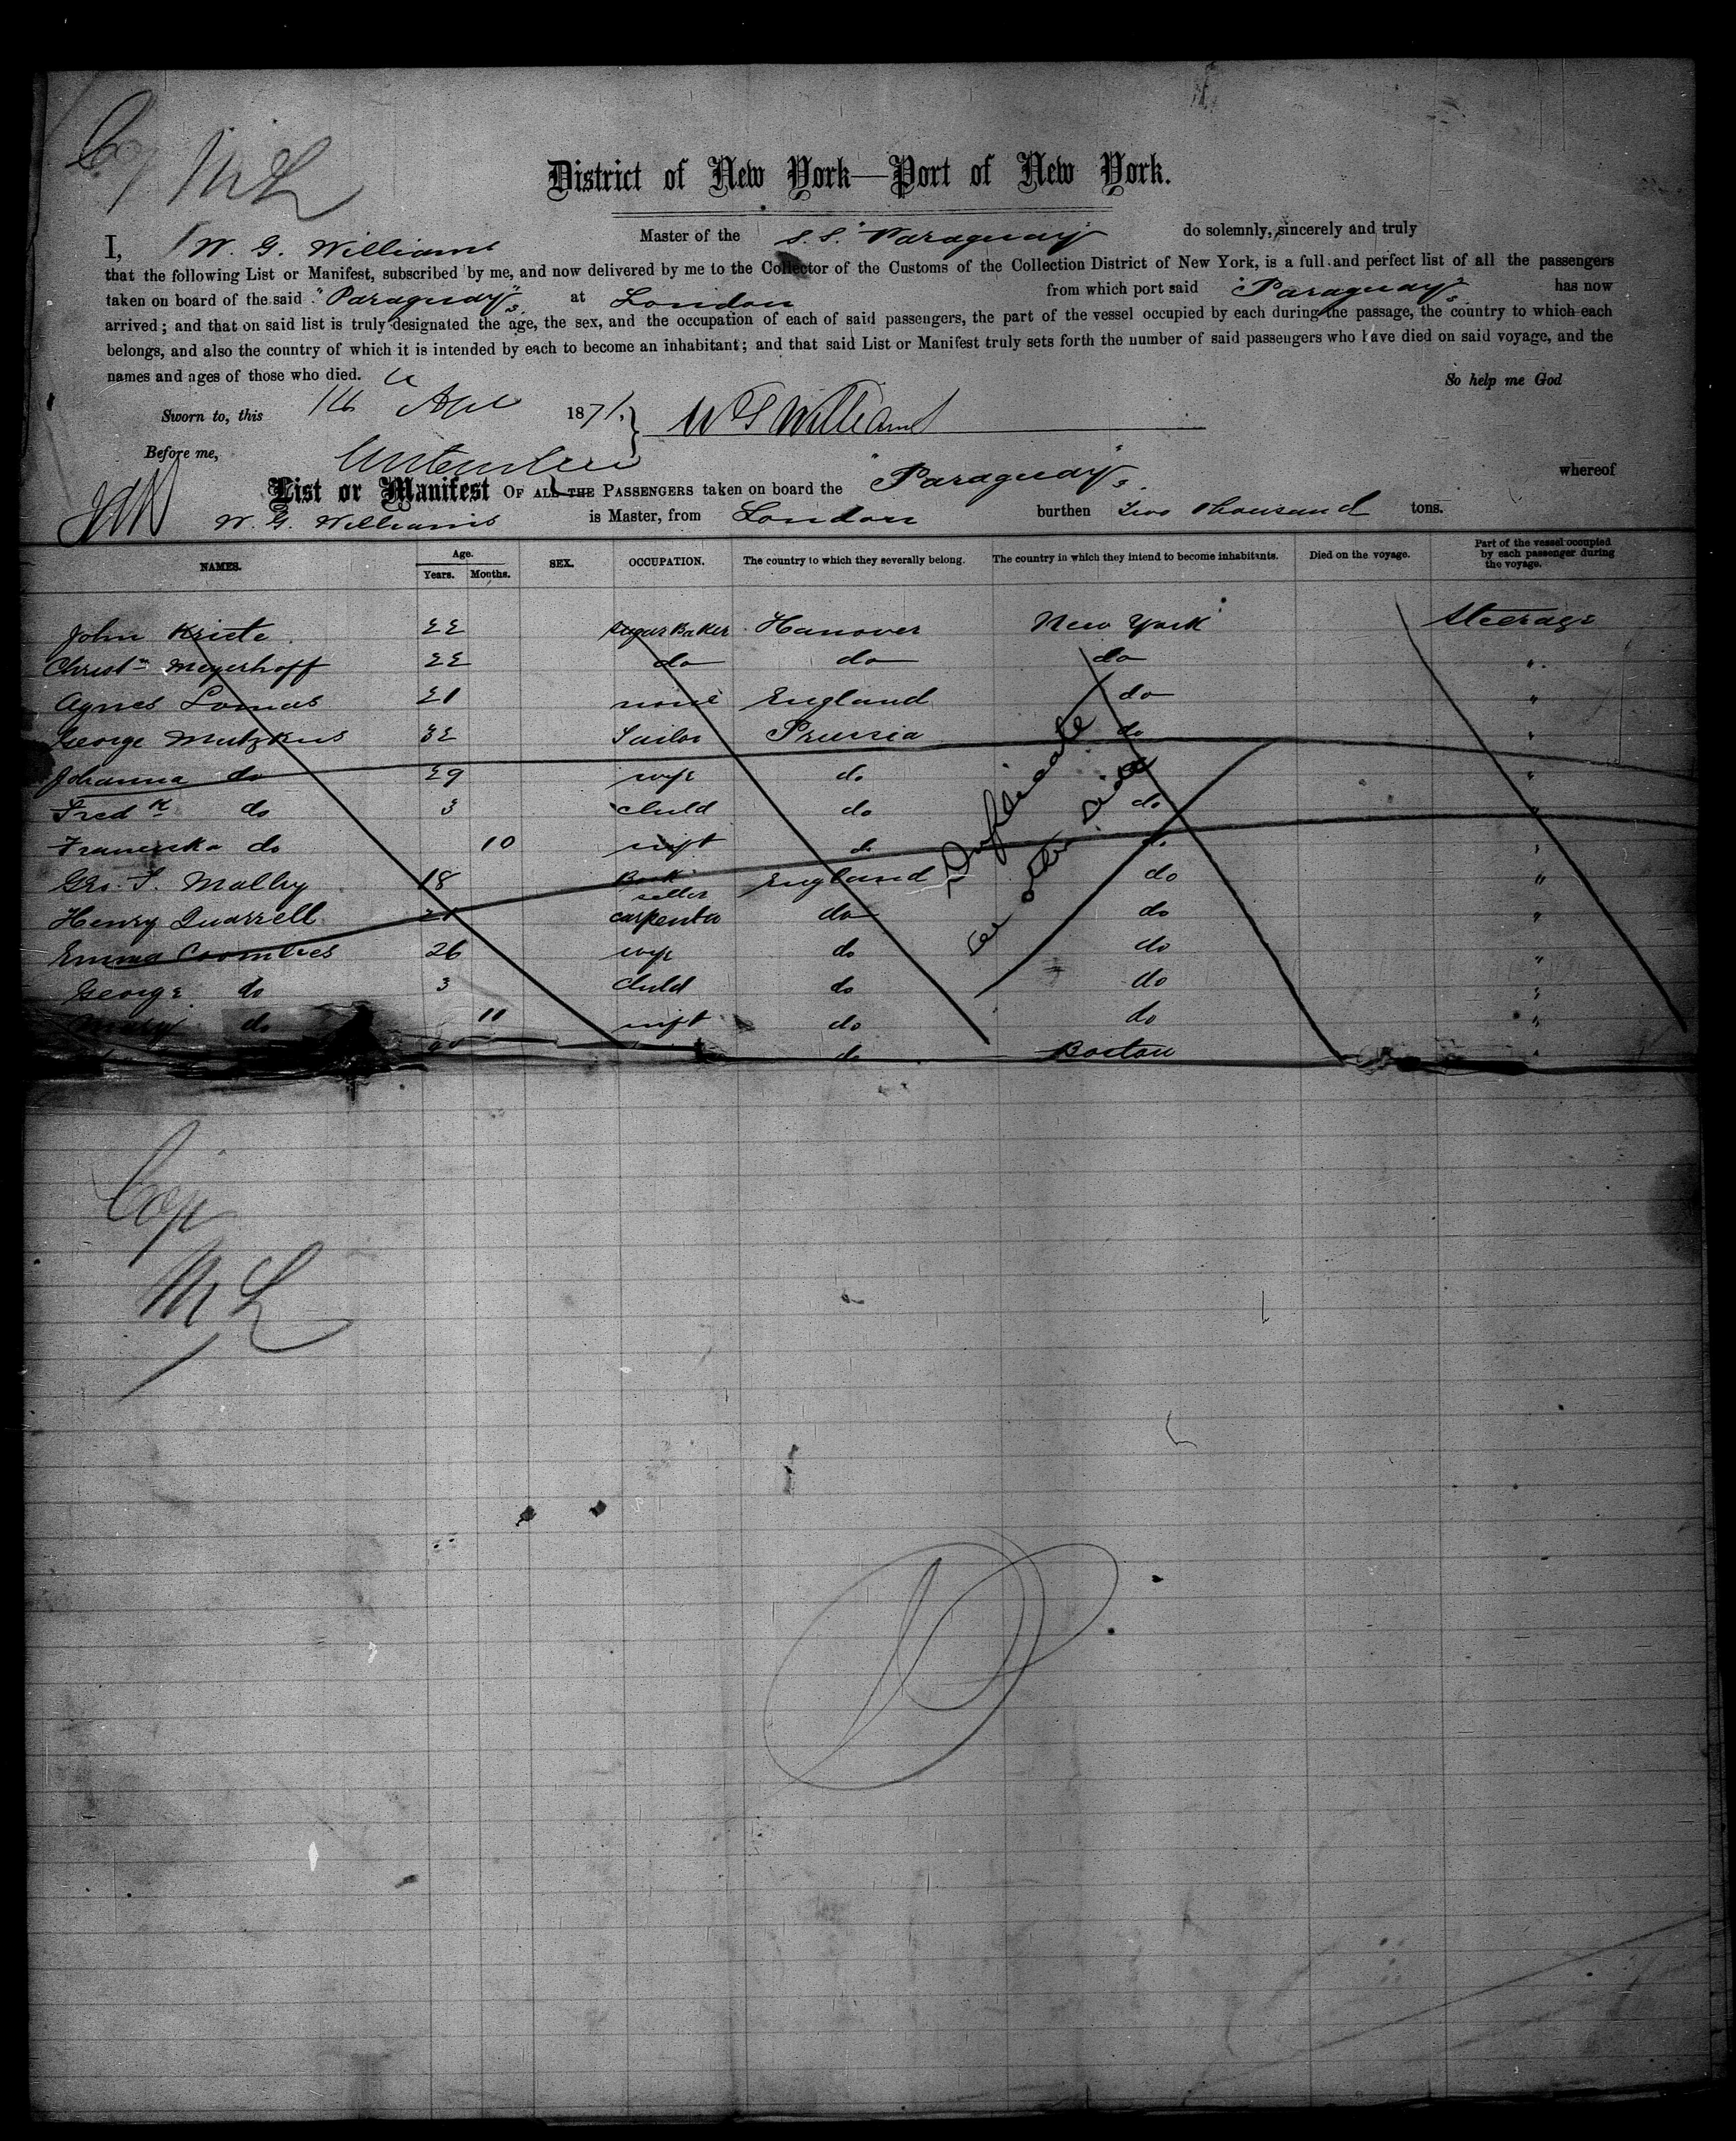 Cop ML
District of New York—Port of New York.
I, W. G. Williams Master of the S.S. "Paraguay" do solemnly, sincerely and truly
that the following List or Manifest, subscribed by me, and now delivered by me to the Collector of the Customs of the Collection District of New York, is a full and perfect list of all the passengers
taken on board of the said "Paraguay" at London from which port said "Paraguay" has now
arrived; and that on said list is truly designated the age, the sex, and the occupation of each of said passengers, the part of the vessel occupied by each during the passage, the country to which each
belongs, and also the country of which it is intended by each to become an inhabitant; and that said List or Manifest truly sets forth the number of said passengers who have died on said voyage, and the
names and ages of those who died. So help me God
Sworn to, this Apl 1871. W G Williams
Before me,
List or Manifest OF ALL THE PASSENGERS taken on board the "Paraguay" whereof
W. G. Williams is Master, from London burthen Two thousand tons.
NAMES. Age. Years. Months. SEX. OCCUPATION. The country to which they severally belong. The country in which they intend to become inhabitants. Died on the voyage. Part of the vessel occupied by each passenger during the voyage.
John Kriete 22 Sugar Baker Hanover New York Steerage
Christn Meyerhoff 22 do do do "
Agnes Lomas 21 none England do "
George Mutzkus 32 Sailor Prussia do "
Johanna do 29 wife do "
Fredk do 3 child do do "
Franciska do 10 inft do do "
Geo. T. Malby 18 Book seller England do "
Henry Quarrell 21 carpenter do do "
Emma Coombes 26 wife do do "
George do 3 child do do "
Mary do 11 inft do do "
do Boston "
Duplicate
on other side
Cop
ML